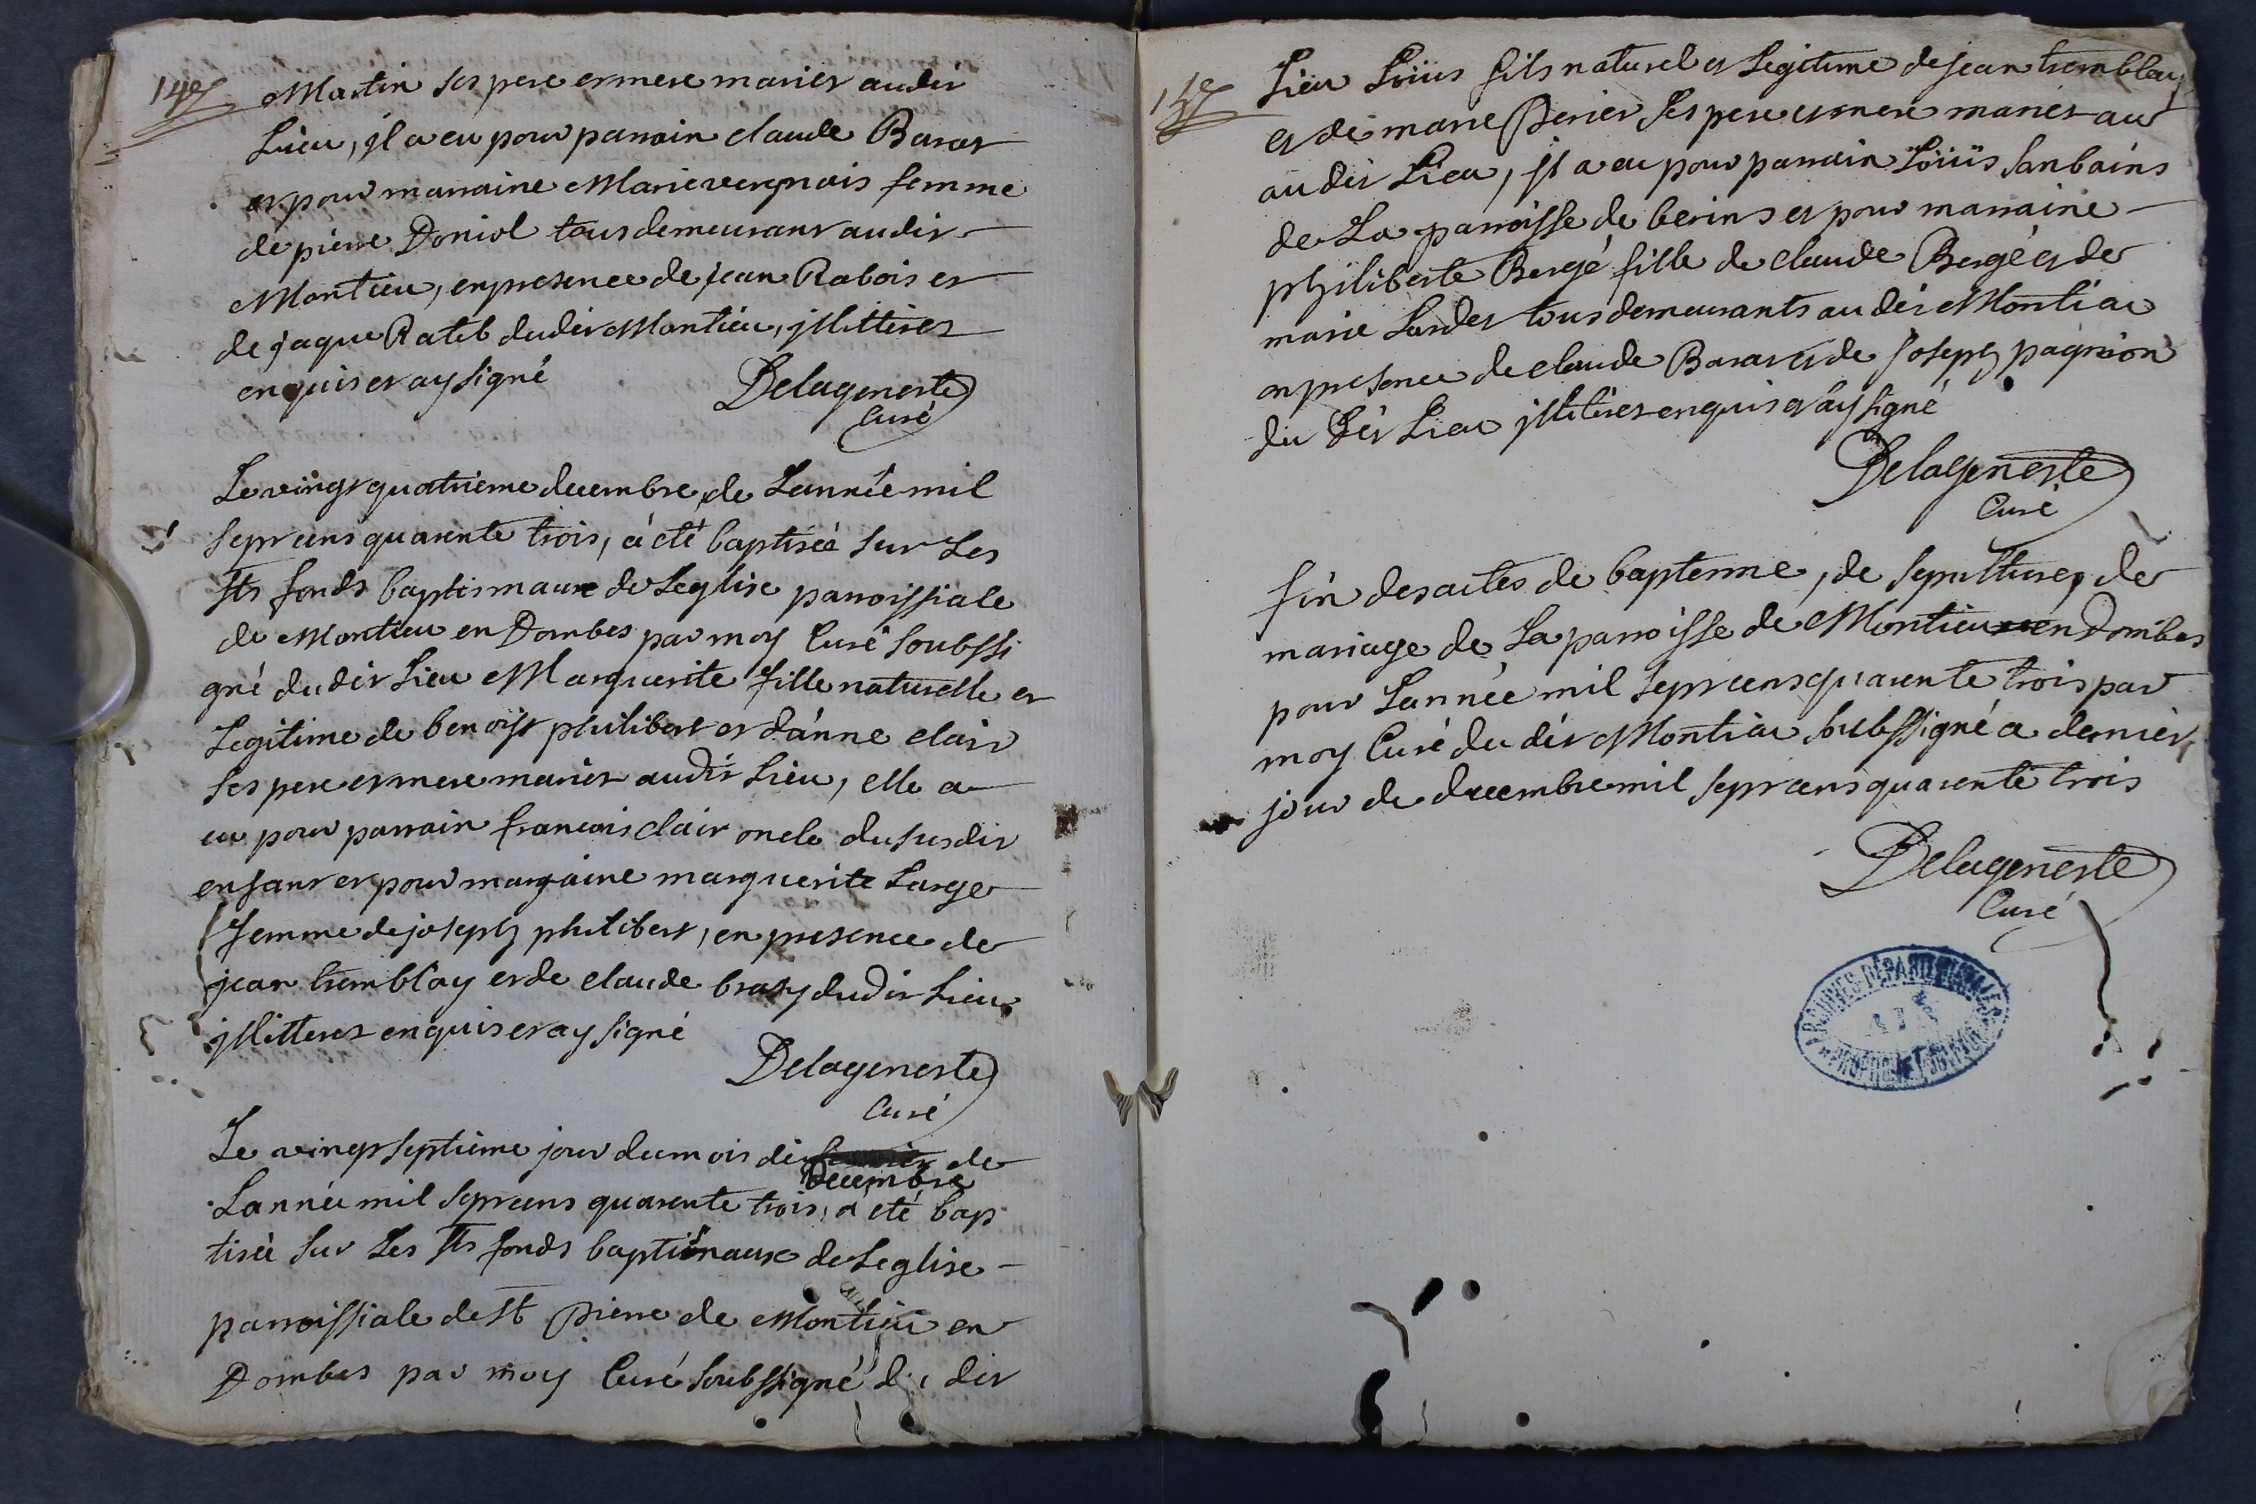 Martin ses pere et mere mariés audit
Lieu, jl a eu pour parrain claude Baras
et pour marraine Marie vergnais femme
de pierre Doniol tous demeurant audit
Montieu, en presence de jean Rabois et
de jaque Ratel dudit Montieu, jllitterés
enquis et ay signé
Delageneste
Curé
Le vingt quatrieme decembre de L'année mil
sept cens quarente trois, à eté baptiseé sur Les
sts fonds baptismaux de Leglise parroissiale
de Montieu en Dombes par moy Curé soubssi
gné dudit Lieu Marguerite fille naturelle et
Legitime de benoist philibert et d'anne clair
ses pere et mere mariés audit Lieu, elle a
eu pour parrain francois clair oncle du susdit
enfant et pour marraine marguerite Large
femme de joseph philibert, en presence de
jean tremblay et de claude brasy dudit Lieu
jllitterés enquis et ay signé
Delageneste
Curé
Le vingt septieme jour du mois de de
Decembre
L'année mil sept cens quarente trois, a eté bap
tisé sur Les sts fonds baptismaux de Leglise
parroissiale de st pierre de Montieu en
Dombes par moy Curé soubssigné du dit
Lieu Loüis fils naturel et Legitime de jean tremblay
et de marie Perier ses pere et mere mariés au
audit Lieu, jl a eu pour parrain Loüis sanbains
de La parroisse de berins et pour marraine
philiberte Bergé fille de claude Bergé et de
marie Lardet tous demeurants audit Montieu
en presence de claude Baras et de joseph pagnion
du dit Lieu jllitterés enquis et ay signé
Delageneste
Curé
fin des actes de baptemme, de sepulture, de
mariage de La parroisse de Montieu en Dombes
pour L'année mil sept cens quarente trois par
moy Curé du dit Montieu soubssigné a dernier
jour de decembre mil sept cens quarente trois
Delageneste
Curé
ARCHIVES DÉPARTEMENTALES
PROPRIÉTÉ PUBLIQUE